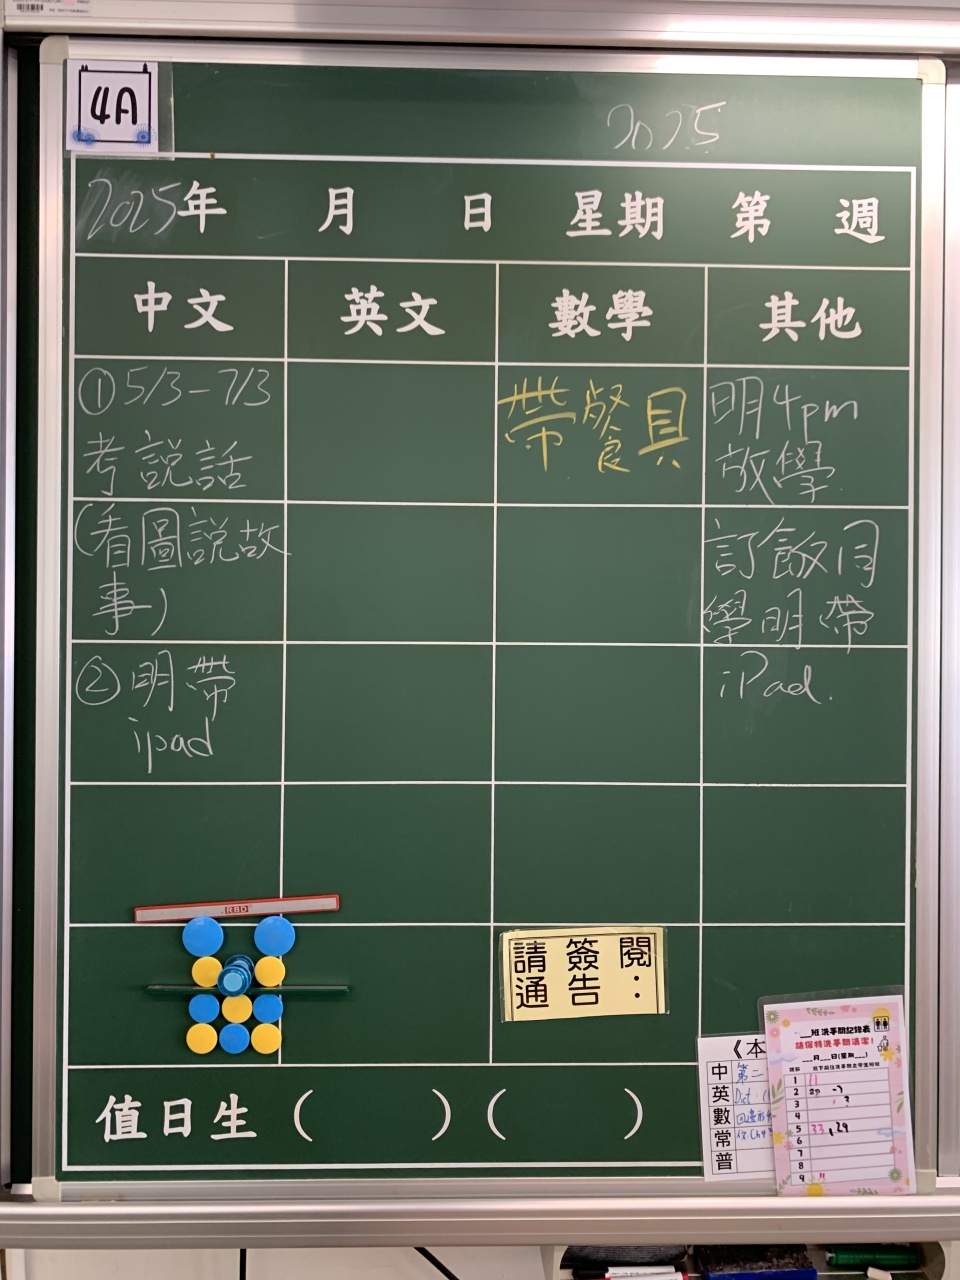 4A
2025
2025年 月 日 星期 第 週
中文 英文 數學 其他
①5/3-7/3
考說話
(看圖說故
事)
②明帶
ipad
帶餐具
明4pm
放學
訂飯同
學明帶
iPad.
RBD
請簽閱
通告：
值日生 ( ) ( )
《本
中 第二
英 Dict
數
常
普
班洗手間記錄表
請保持洗手間清潔!
月 日(星期 )
1 11
2
3 ?
4
5 33, 29
6
7
8
9 11